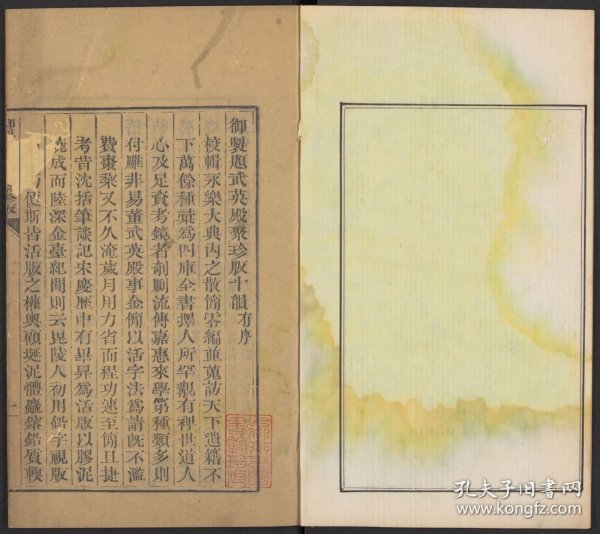 御製題武英殿聚珍版十韻有序
校輯永樂大典內之散簡零編並蒐訪天下遺籍不
下萬餘種彙為四庫全書擇人所罕覯有裨世道人
心及足資考鏡者剞劂流傳嘉惠來學第種類多則
付雕非易董武英殿事金簡以活字法為請既不濫
費棗梨又不久淹歲月用力省而程功速至簡且捷
考昔沈括筆談記宋慶歷中有畢昇為活版以膠泥
燒成而陸深金臺紀聞則云毘陵人初用鉛字視版
印
便斯皆活版之權輿顧埏泥體麤鎔鉛質輭
一
孔夫子旧书网
www.kongfz.com